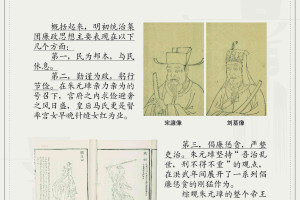 概括起来，明初统治集
团廉政思想主要表现在以下
几个方面：
第一，民为邦本，与民
休息。
第二，勤谨为政，躬行
节俭。在朱元璋亲力亲为的
号召下，官府之内求俭避奢
之风日盛，皇后马氏更是督
率宫女早晚针缝女红为业。
宋濂像
刘基像
第三，倡廉惩贪，严整
吏治。朱元璋坚持“吾治乱
世，刑不得不重”的观点，
在洪武年间展开了一系列倡
廉惩贪的刚猛作为。
综观朱元璋的整个帝王